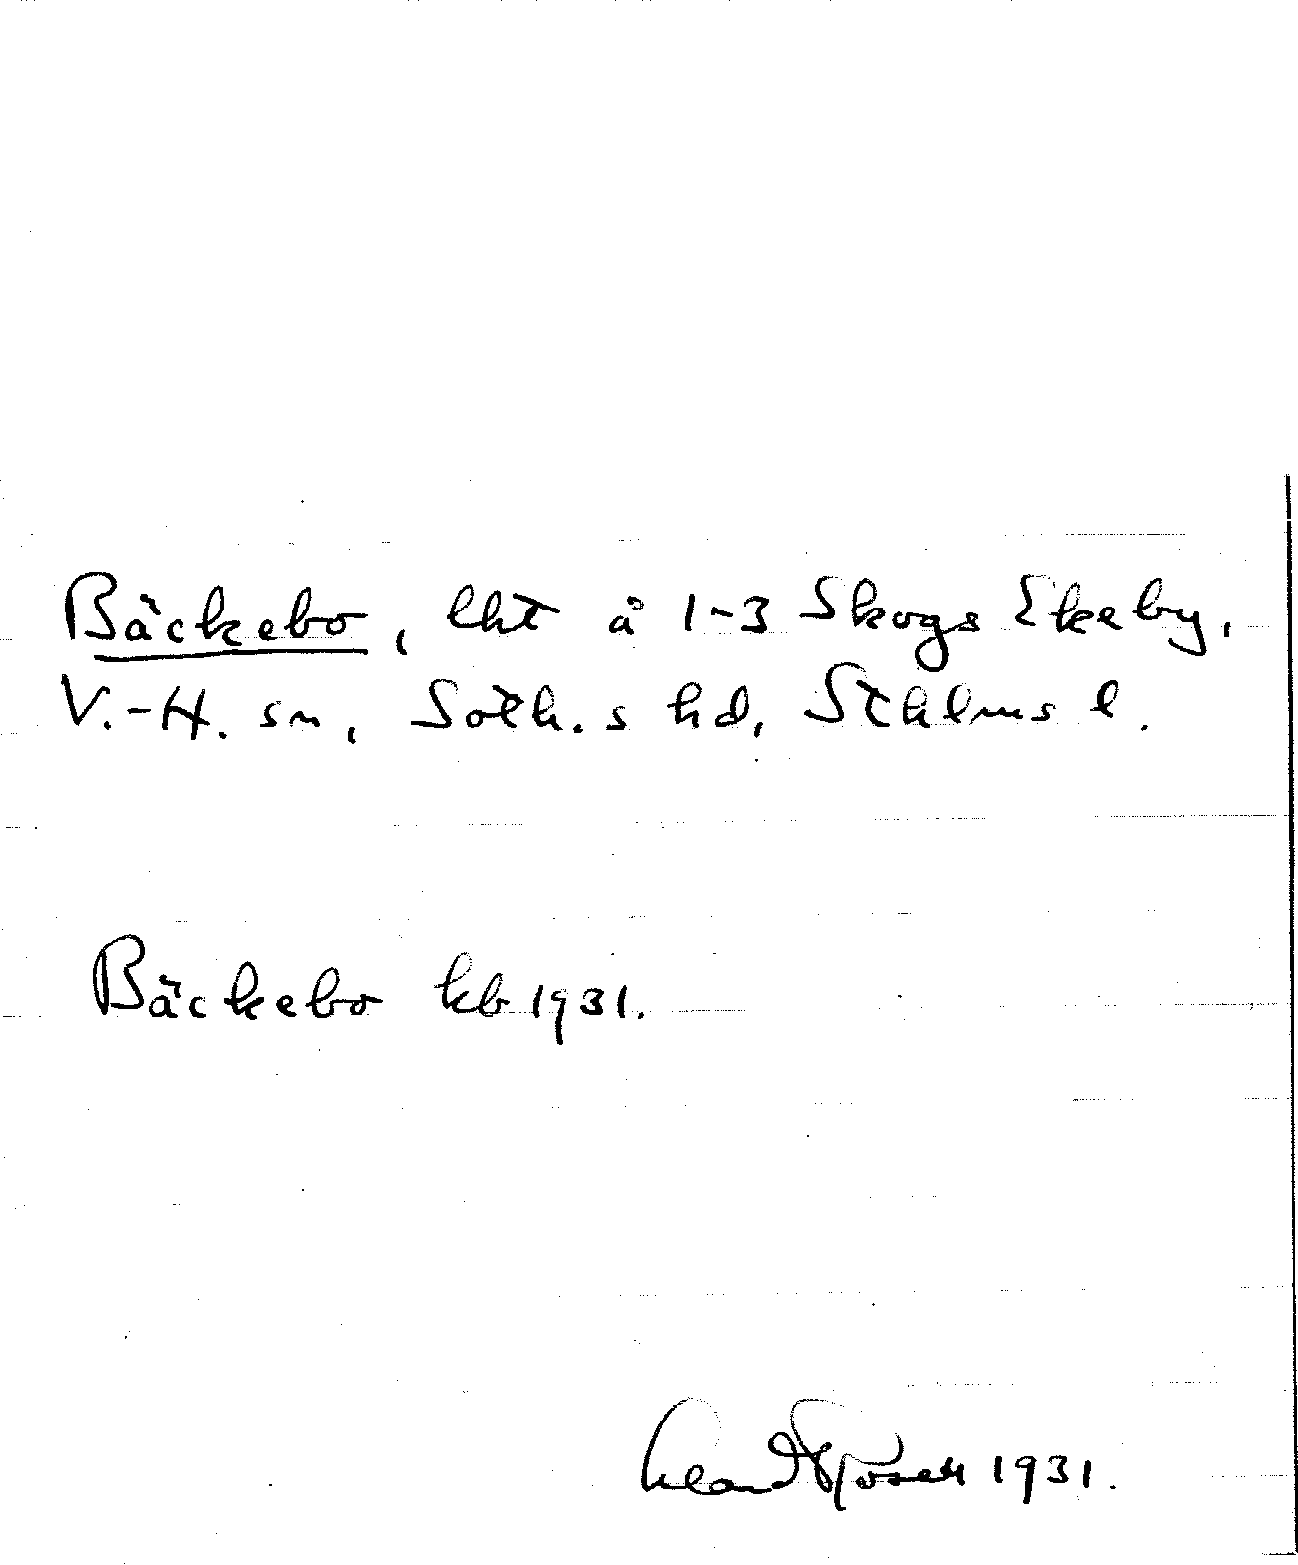 Bäckebo, lht å 1-3 Skogs Ekeby,
V.-H. sn, Soth.s hd, Sthlms l.
Bäckebo kb 1931.
1931.